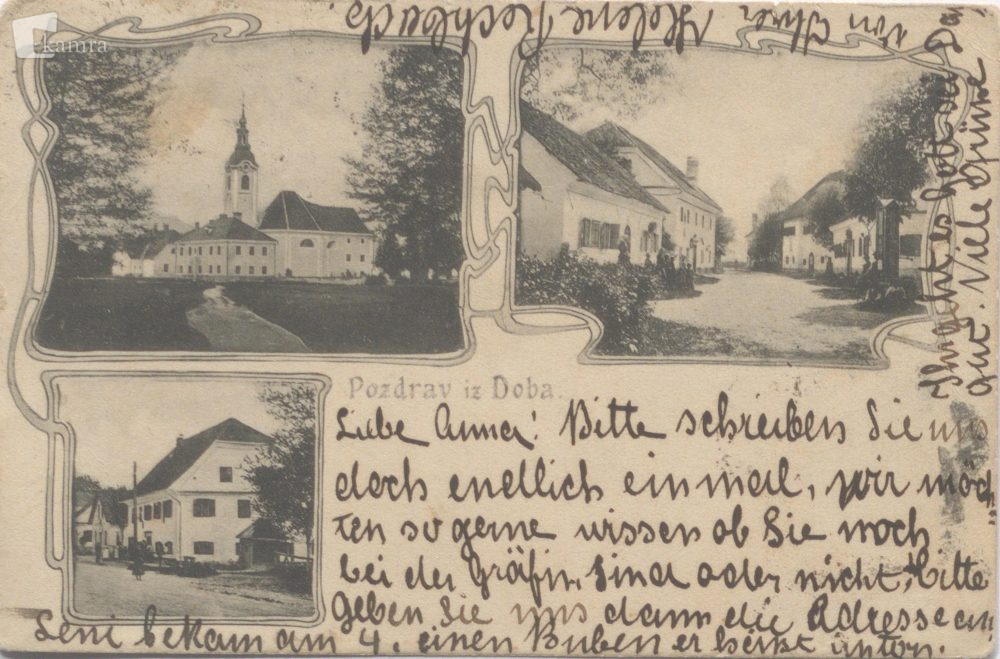 kamra
Pozdrav iz Doba.
Liebe Anna! Bitte schreiben Sie uns
doch endlich einmal, wir möch
ten so gerne wissen ob Sie noch
bei der Gräfin sind oder nicht, bitte
geben Sie uns dann die Adresse an
Leni bekam am 4. einen Buben er heist Anton.
gut. Viele Grüsse
von Ihrer Helene